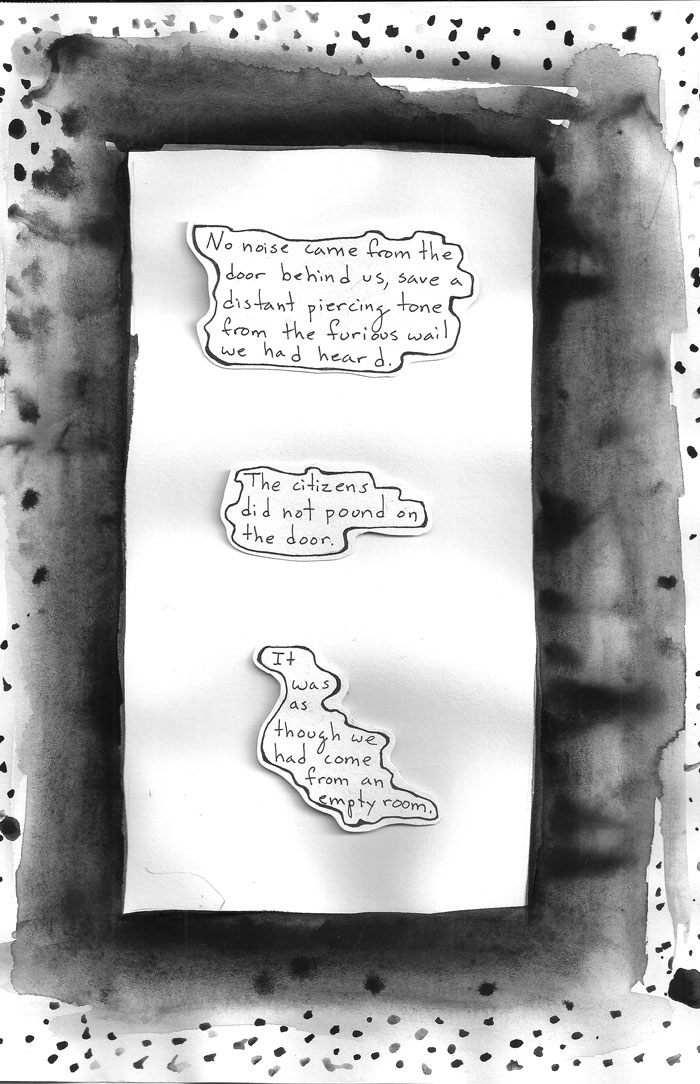 No noise came from the
door behind us, save a
distant piercing tone
from the furious wail
we had heard.
The citizens
did not pound on
the door.
It
was
as
though we
had come
from an
empty room.